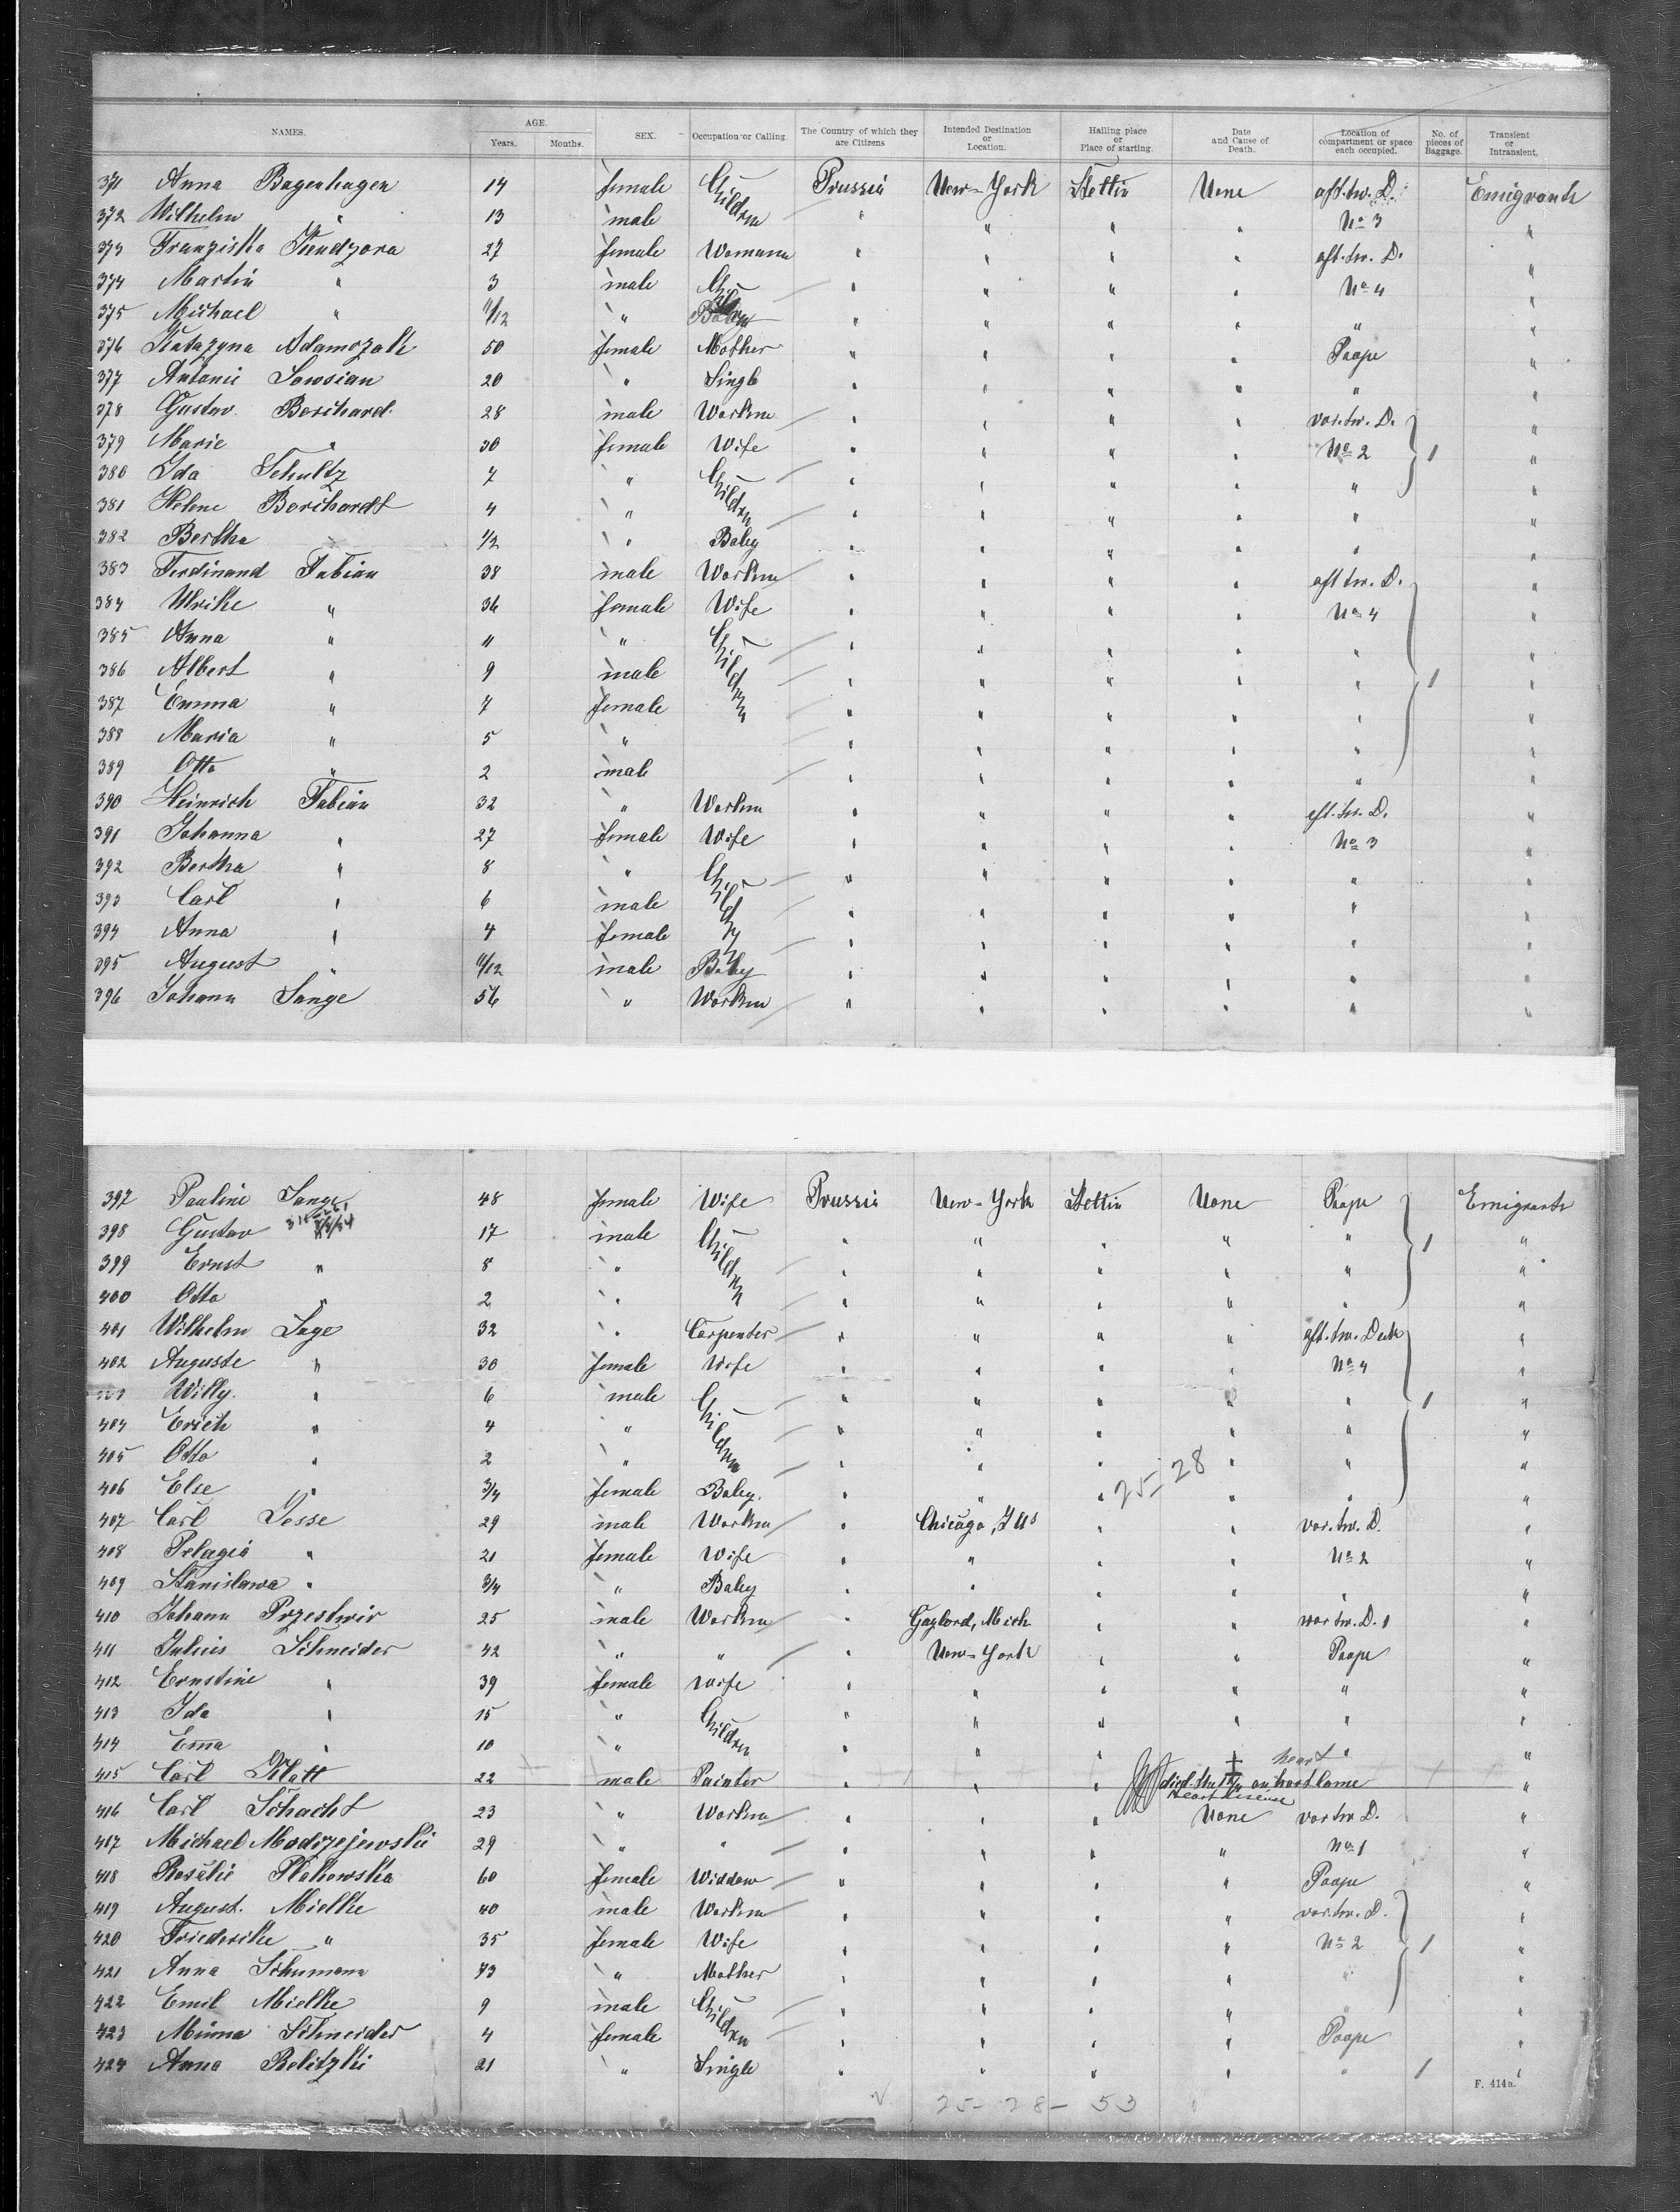 NAMES. AGE. Years. Months. SEX. Occupation or Calling. The Country of which they are Citizens Intended Destination or Location. Hailing place or Place of starting. Date and Cause of Death. Location of compartment or space each occupied. No. of pieces of Baggage. Transient or Intransient.
371 Anna Bagenhagen 14 female Children Prussia New-York Stettin None aft. tw. D. Emigrants
372 Wilhelm " 13 male " " " " No 3 "
373 Franziska Kendzora 27 female Womann " " " " aft. tw. D. "
374 Martin " 3 male " " " " No 4 "
375 Michael " 11/12 " Baby " " " " " "
376 Katazyna Adamczak 50 female Mother " " " " Poope "
377 Antonie 20 " Single " " " " " "
378 Gustav Borchard 28 male Workm " " " " vor. tw. D. "
379 Marie " 30 female Wife " " " " No 2 1 "
380 Ida Schultz 7 " Children " " " " " "
381 Helene Borchardt 4 " " " " " " "
382 Bertha 1/2 " Baby " " " " " "
383 Ferdinand Fabian 38 male Workm " " " " aft tw. D. "
384 Ulrike " 36 female Wife " " " " No 4 "
385 Anna " 11 " Children " " " " " "
386 Albert " 9 male " " " " " 1 "
387 Emma " 7 female " " " " " "
388 Maria " 5 " " " " " " "
389 Otto " 2 male " " " " " "
390 Heinrich Fabian 32 " Workm " " " " aft. tw. D. "
391 Johanna " 27 female Wife " " " " No 3 "
392 Bertha " 8 " Children " " " " " "
393 Carl " 6 male " " " " " "
394 Anna " 4 female " " " " " "
395 August " 11/12 male Baby " " " " " "
396 Johann Lange 56 " Workm " " " " " "
397 Pauline Lange 48 female Wife Prussia New-York Stettin None Poope Emigrants
398 Gustav 17 male Children " " " " " 1 "
399 Ernst " 8 " " " " " " "
400 Otto " 2 " " " " " " "
401 Wilhelm Lage 32 " Carpenter " " " " aft. tw. Deck "
402 Auguste " 30 female Wife " " " " No 4 "
Willy " 6 male Children " " " " " 1 "
404 Erich " 4 " " " " " " "
405 Otto " 2 " " " " " " "
25-28
406 Else " 3/4 female Baby. " " " " " "
407 Carl Josse 29 male Workm " Chicago, Ills " " vor. tw. D. "
408 Pelagia " 21 female Wife " " " " No 2 "
409 Stanislawa " 3/4 " Baby " " " " " "
410 Johann Przestwir 25 male Workm " Gaylord, Mich " " vor tw. D. 1 "
411 Julius Schneider 42 " " " New-York " " Poope "
412 Ernstine " 39 female Wife " " " " " "
413 Ida " 15 " Children " " " " " "
414 Emma " 10 " " " " " "
415 Carl Klatt 22 male Painter " " " died heart Heart disease "
416 Carl Schacht 23 " Workm " " " None vor tw D. "
417 Michael Modrzejewski 29 " " " " " " No 1 "
418 Rosalie Plakowska 60 female Widdow " " " " Poope "
419 August. Mielke 40 male Workm " " " " vor. tw. D. "
420 Friederike " 35 female Wife " " " " No 2 1 "
421 Anna Schumann 73 " Mother " " " " " "
422 Emil Mielke 9 male Children " " " " " "
423 Minna Schneider 4 female " " " " Poope "
424 Anna Belitzki 21 " Single " " " " " 1 "
F. 414a.
25-28-53